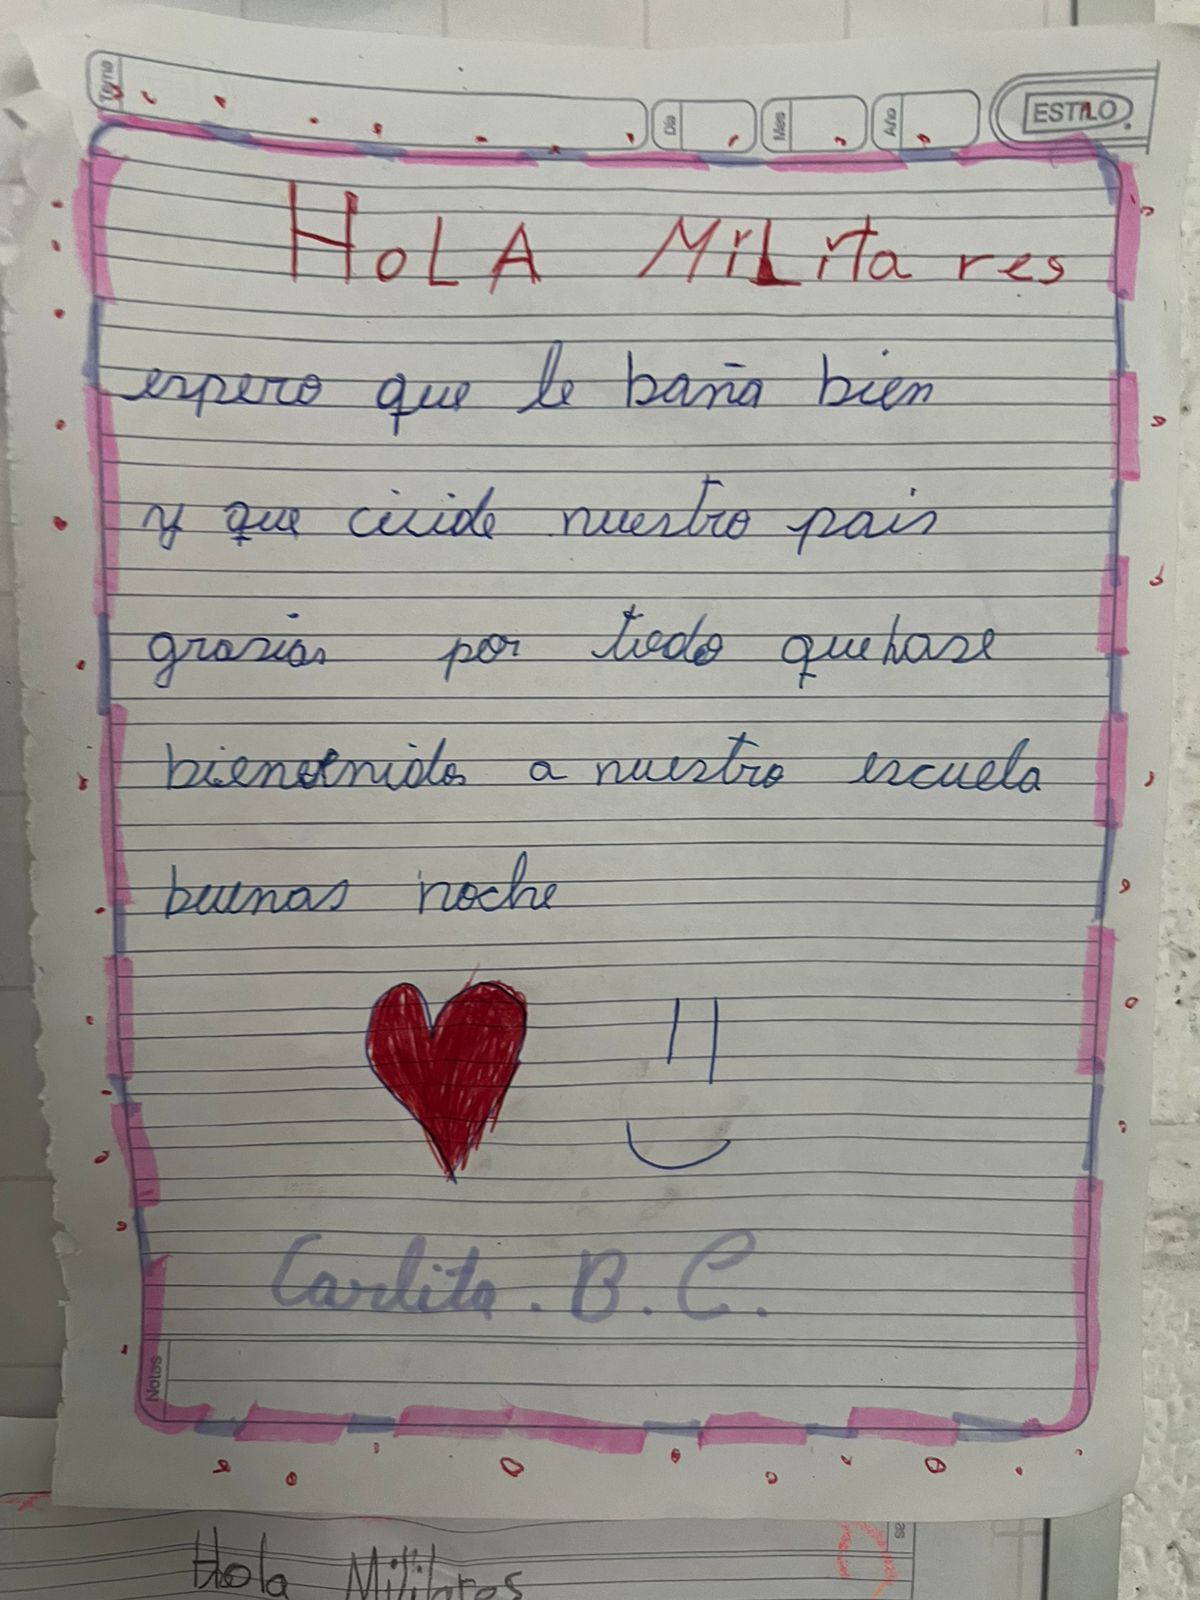 Tema
Día
Mes
Año
ESTILO
HoLA MiLitares
espero que le baña bien
y que ciude nuestro pais
grasias por todo que hase
bienvenido a nuestro escuela
buenas noche
Carlita. B. C.
Notas
Hola Militares